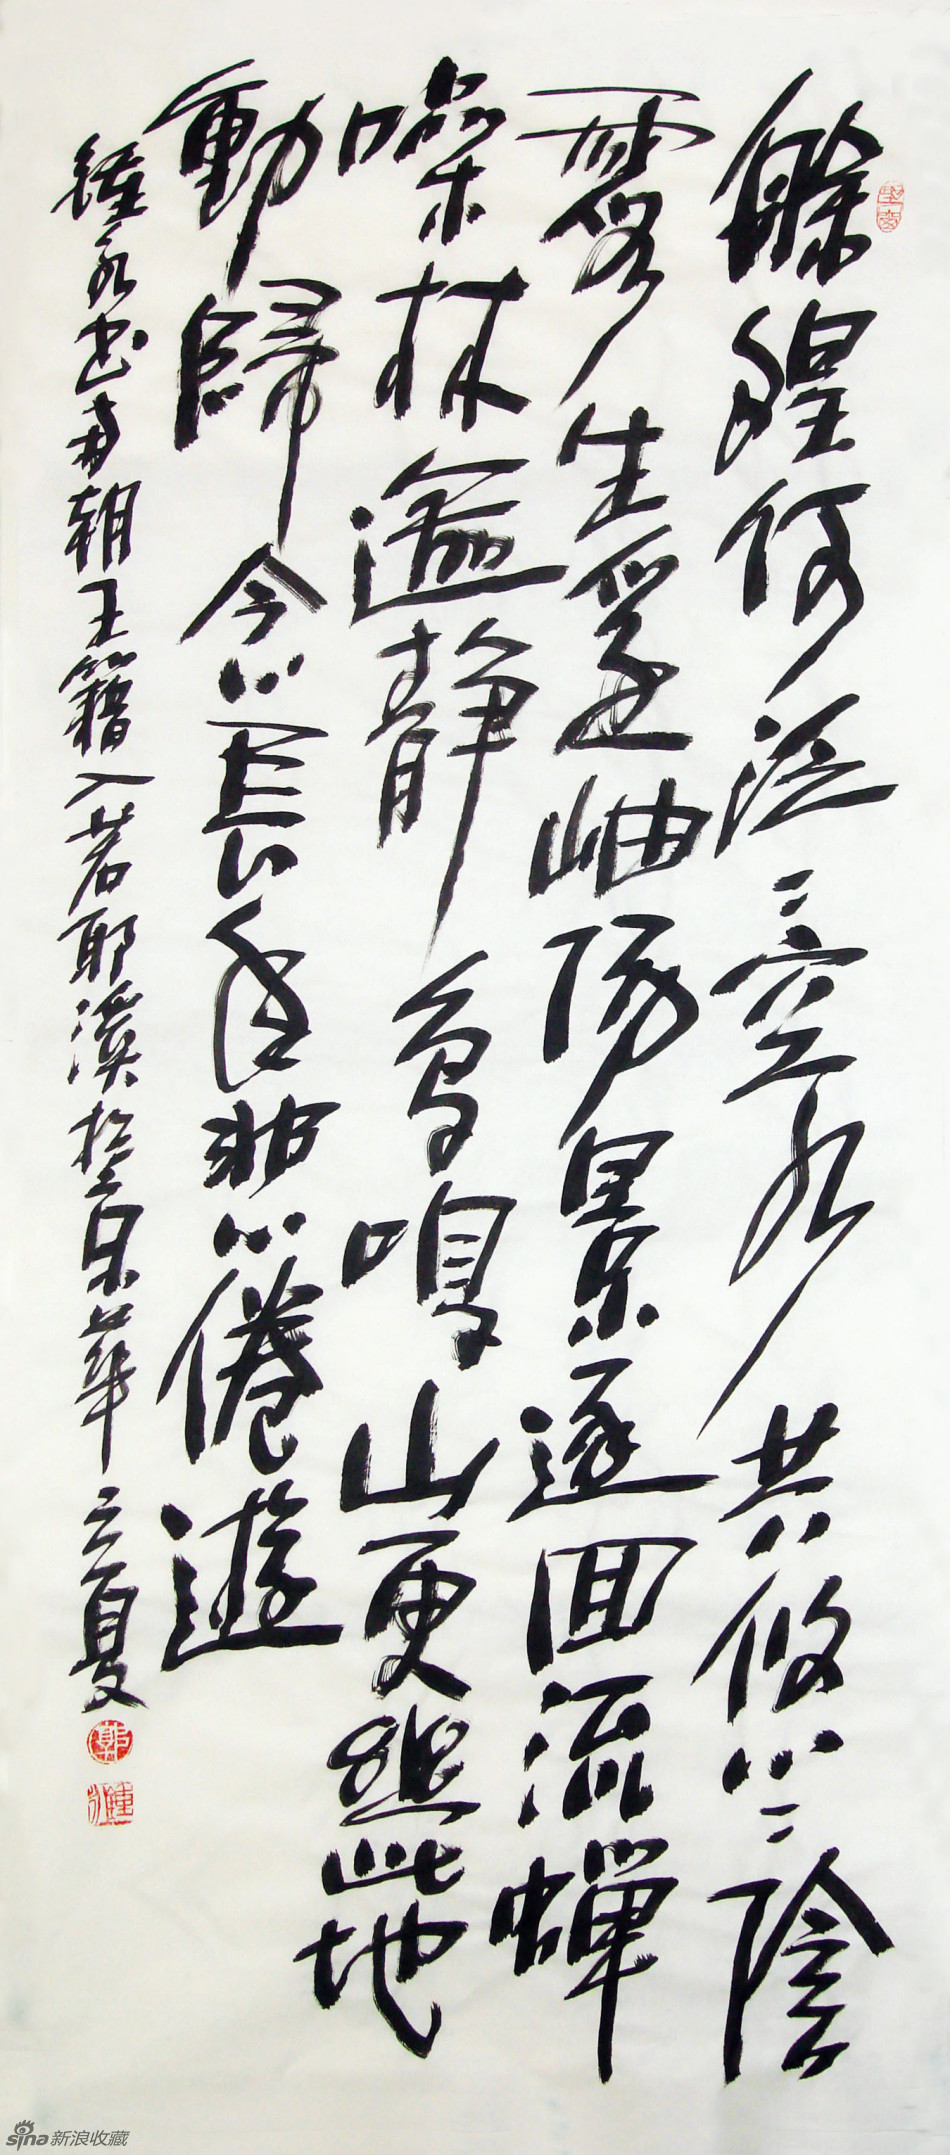 艅艎何泛々空水共悠々陰
霞生遠岫陽景逐回流蟬
噪林逾靜鳥鳴山更幽此地
動歸念長年悲倦遊
鍾永書南朝王籍入若耶溪於京華立夏
sina新浪收藏